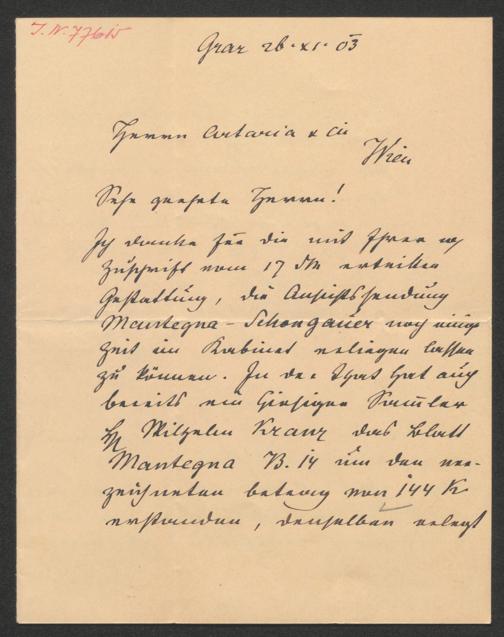 I. N. 77615
Graz 26. XI. 03
Herren Artaria & Cie
Wien
Sehr geehrte Herren!
Ich danke für die mit Ihrer
Zuschrift vom 17 dM erteilte
Gestattung, die Ansichtssendung
Mantegna - Schongauer noch einige
Zeit im Kabinet erliegen lassen
zu können. In der That hat auch
bereits ein hiesiger Sam̅ler
H Wilhelm Kranz das Blatt
Mantegna B. 14 um den ver-
zeichneten betrag von 144 K
erstanden, denselben erlegt